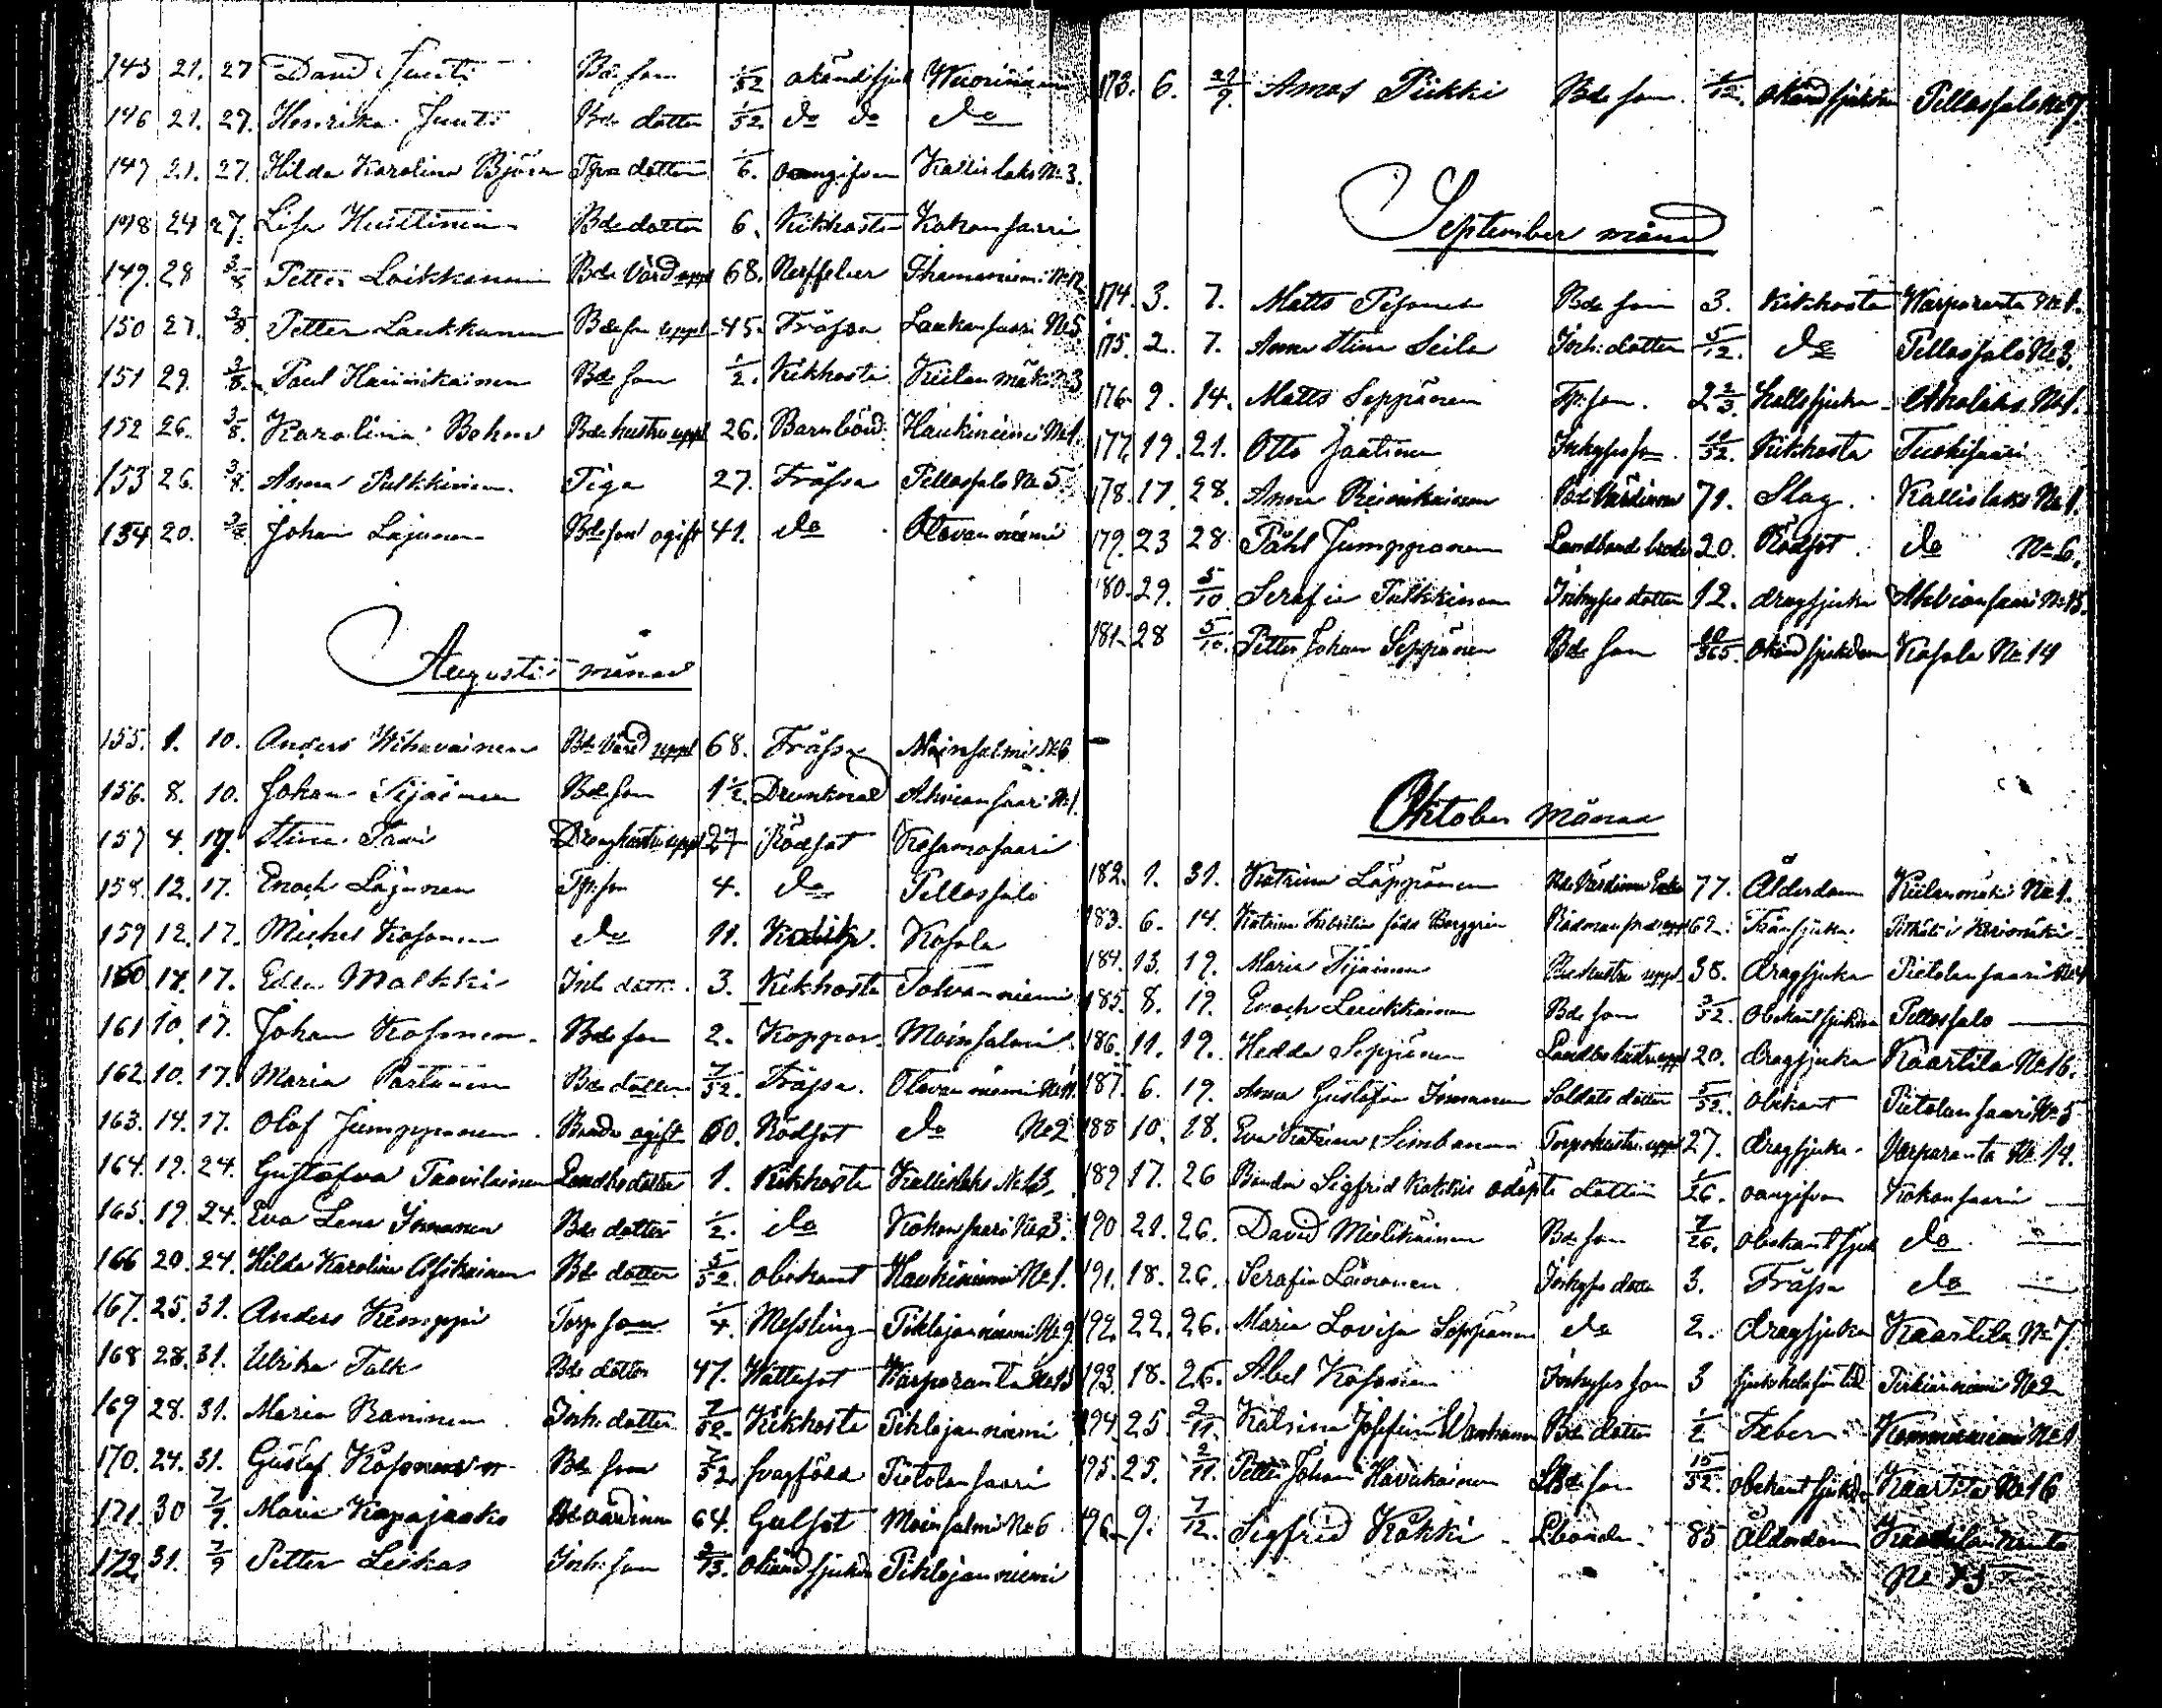 145 21. 27 David Juuti Bde son 1/52 okänd sjuk Wuoriniemi
146 21. 27. Henrika Juuti Bde dotter 1/52. do do do
147 21. 27. Hilda Karolina Björn Tpr dotter 1/6. oangifven Kallislaks No 3.
148 24 27. Lisa Huttinen Bde dotter 6. Kikhosta Kokonsaari
149. 28 3/8 Petter Loikkanen Bde Värd uppl 68. Nerffeber Ihamaniemi No 12
150 27. 3/8. Petter Laukkanen Bde son uppl 45. Frässa Laukansaari No 5
151 29. 3/8. Paul Hannikainen Bde son 1/2. Kikhosta Kiilanmäki No 3
152 26. 3/8. Karolina Bohm Bde hustru uppl 26. Barnbörd. Haukiniemi No 1.
153 26. 3/8. Anna Pulkkinen. Piga 27. Frässa Pellossalo No 5
154 20. 3/8 Johan Lajunen Bde son ogift 41. do Olavanniemi
Augusti månad
155. 1. 10. Anders Wihavainen Bde Värd uppl 68. Frässa Moinsalmi No 6
156. 8. 10. Johan Tijainen Bde son 1 1/2. Drunknad Ahvionsaari No 1.
157 4. 17. Stina Tavi Dreng hustru uppl 27 Rödsot Kesamosaari
158. 12. 17. Enoch Lajunen Tp. son 4. do Pellossalo
159 12. 17. Michel Kosonen do 11. Kosola
160 14. 17. Edla Malkki Inh. dotter. 3. Kikhosta Tolvanniemi
161 10. 17. Johan Kosonen. Bde son 2. Koppor. Moinsalmi
162. 10. 17. Maria Partanen Bde dotter 7/52. Frässa. Olavanniemi No 11.
163. 14. 17. Olof Jumpponen. Bonde ogift 60. Rödsot do No 2
164. 19. 24. Gustafva Taavilainen Landbo dotter 1. Kikhosta Kallislaks No 13.
165. 19. 24. Eva Lena Immonen Bde dotter 1/2. do Kokonsaari No 3.
166 20. 24. Hilda Karolina Asikainen Bde dotter 5/52. obekant Haukiniemi No 1.
167. 25. 31. Anders Kemppi Torp son 1/4. Messling Pihlajaniemi No 9
168 28. 31. Ulrika Talk Bde dotter 47. Wattusot Warparanta No 13
169 28. 31. Maria Raninen Inh. dotter 7/52. Kikhosta Pihlajaniemi
170. 24. 31. Gustaf Kosonen Bde son 7/52. svagfödd Pietolansaari
171. 30 7/9. Maria Kapajasko Bde värdinna 64. Gulsot Moinsalmi No 6
172. 31. 7/9 Petter Leskas Inh. son 2/13. okänd sjukd Pihlajaniemi
173. 6. 21/9. Amos Piikki Bde son. /12. okänd sjukdom Pellossalo No 7.
September månad
174. 3. 7. Matts Pesonen Bde son 3. Kikhosta Warparanta No 1.
175. 2. 7. Anna Stina Seila Inh. dotter 5/12. do Pellossalo No 3.
176. 9. 14. Matts Seppänen Tp. son. 2 2/3. Hallsjuka Aholaks No 1.
177. 19. 21. Otto Jantinen Inhyses son 10/52. Kikhosta Tuohisaari
178. 17. 28. Anna Reinikainen Bde Värdinna 71. Slag. Kallislaks No 1.
179. 23 28 Påhl Jumpponen Landbonde broder 20. Rödsot. do No 6.
180. 29. 5/10. Serafia Pulkkinen Inhyses dotter 12. dragsjuka Ahvionsaari No 15.
181. 28 5/10. Petter Johan Seppänen Bde son 10/365. okänd sjukdom Kosola No 14
Oktober Månad
182. 1. 31. Katrina Läppänen Bde Värdinna Enka 77. Ålderdom Kiilanmäki No 1.
183. 6. 14. Katrina född Berggren 62. Tränsjuka.
184. 13. 19. Maria Tijainen Bde hustru uppl. 38. dragsjuka Pietolansaari No 4
185. 8. 19. Enoch Leinikkainen Bde son 3/52. obekant sjukdom Pellossalo
186. 11. 19. Hedda Seppänen Landbo hustru uppl 20. dragsjuka Kaartila No 16.
187. 6. 19. Anna Gustafva Immonen Soldats dotter 5/52. obekant Pietolansaari No 5
188 10. 28. Eva Katrina Simbanen Torpshustru uppl 27. dragsjuka. Varparanta No 14.
189 17. 26 Bonden Sigfrid Kakkis adopte dotter 1/26. oangifven Kokonsaari
190 21. 26. David Miettinäinen Bde son 7/26. obekant sjuk do
191. 18. 26. Serafia Laamanen Inhyses dotter 3. Frässa do
192. 22. 26. Maria Lovisa Seppänen do 2. dragsjuka Kaartila No 7.
193. 18. 26. Abel Kosonen Inhyses son 3 sjuk hela sin tid Pirkinniemi No 2
194. 25. 2/11. Katrina Josefina Wanhanen Bde dotter 1/2 Feber. Kommerniemi No 1
195. 25. 2/11. Petter Johan Havukainen LBde son 15/52. obekant sjukdom Kaartila No 16
196. 9. 7/12. Sigfrid Kåkki Lbonde. 85 Ålderdom Kaartilanranta
No 15